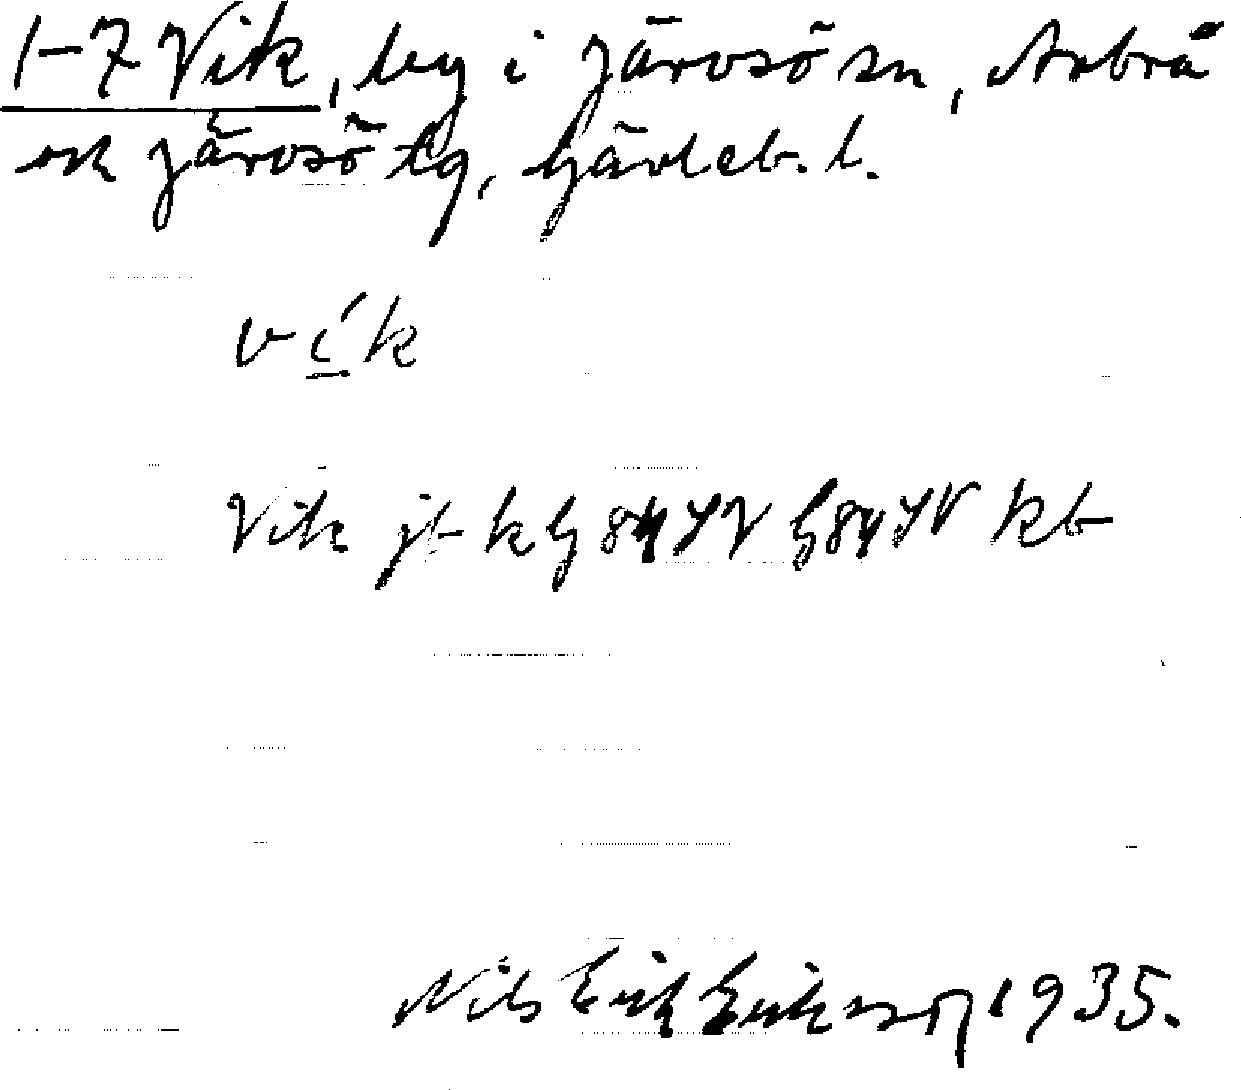 1-7 Vik, by i Järvsö sn, Arbrå
och Järvsö tg, Gävleb. l.
vík
Vik jb k G 84 SV G 84 SV kb
Nils Erik Eriksson 1935.